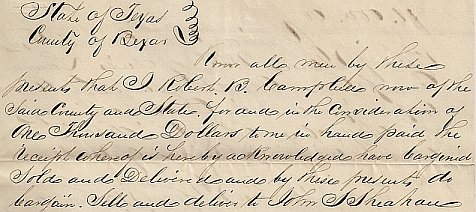 State of Texas
County of Bexar
Know all men by these
presents that I Robert B. Campbell now of the
Said County and State for and in the Consideration of
One Thousand Dollars to me in hand paid the
receipt whereof is hereby acknowledged have bargained
Sold and Delivered and by these presents do
bargain. Sell and deliver to John S